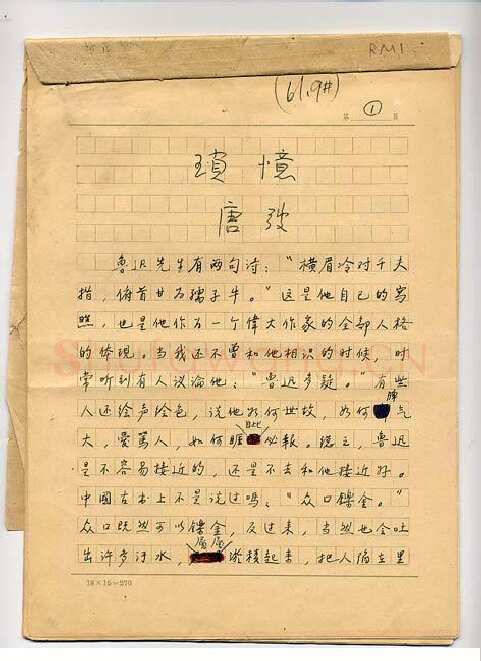 RM1
第 ① 页
瑣憶
唐弢
鲁迅先生有两句诗：“横眉冷对千夫
指，俯首甘为孺子牛。”这是他自己的写
照，也是他作为一个偉大作家的全部人格
的体现。当我还不曾和他相识的时候，时
常听到有人议論他：“鲁迅多疑。”有些
人还绘声绘色，说他如何世故，如何脾气
大，爱罵人，如何睚眦必報。總之，鲁迅
是不容易接近的，还是不去和他接近好。
中國古书上不是说过嗎：“众口鑠金。”
众口既然可以鑠金，反过来，当然也会吐
出许多污水，淤積起来，把人陷在里
18×15=270